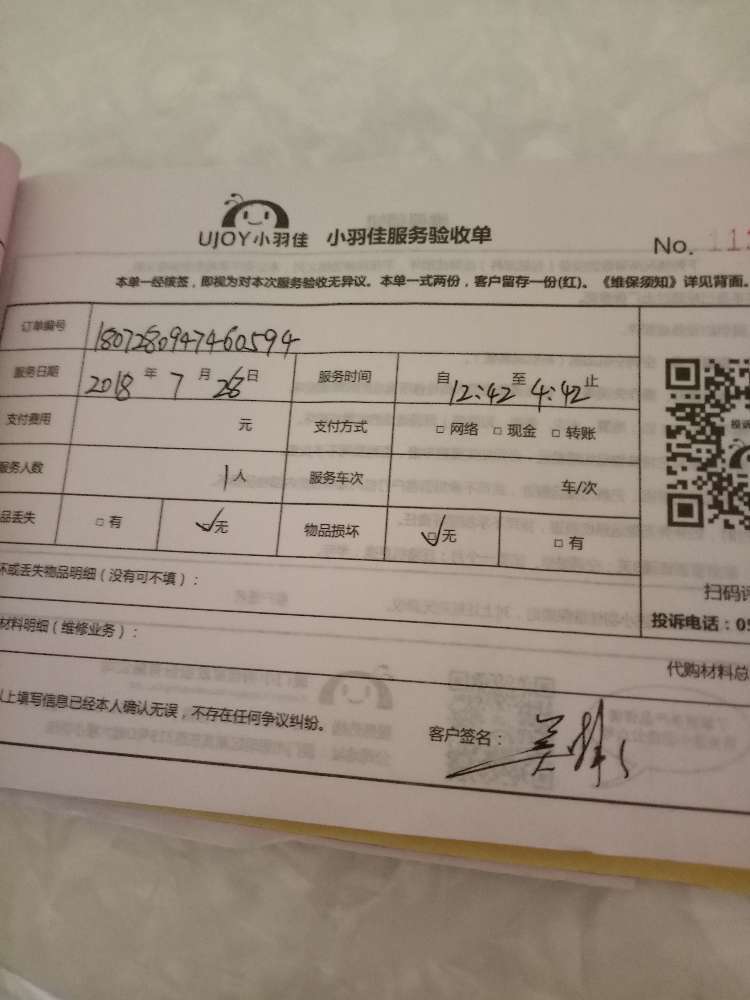 UJOY小羽佳 小羽佳服务验收单
No. 11
本单一经核签，即视为对本次服务验收无异议。本单一式两份，客户留存一份(红)。《维保须知》详见背面。
订单编号 1807280947460594
服务日期 2018 年 7 月 28 日 服务时间 自 12:42 至 4:42 止
支付费用 元 支付方式 □ 网络 □ 现金 □ 转账
服务人数 1 人 服务车次 车/次
品丢失 □ 有 ☑ 无 物品损坏 ☑ 无 □ 有
坏或丢失物品明细（没有可不填）：
扫码评
投诉电话：05
材料明细（维修业务）：
代购材料总
以上填写信息已经本人确认无误，不存在任何争议纠纷。
客户签名：